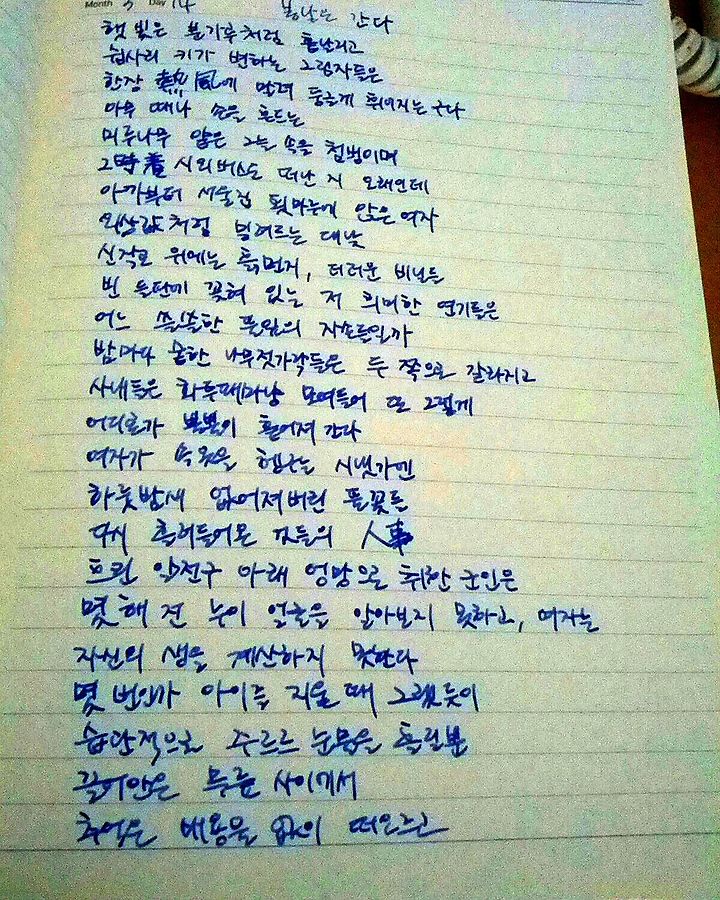 Month 3 Day 14
봄날은 간다
햇빛은 분가루처럼 흩날리고
쉽사리 키가 변하는 그림자들은
한장 熱風에 말려 둥글게 휘어지는구나
아무 때나 손을 흔드는
미루나무 얕은 그늘 속을 첨벙이며
2時着 시외버스도 떠난 지 오래인데
아까부터 서울집 툇마루에 앉은 여자
외상값처럼 밀려드는 대낮
신작로 위에는 흙먼지, 더러운 비닐들
빈 들판에 꽂혀 있는 저 희미한 연기들은
어느 쓸쓸한 풀잎의 자손들일까
밤마다 숱한 나무젓가락들은 두 쪽으로 갈라지고
사내들은 화투패마냥 모여들어 또 그렇게
어디론가 뿔뿔이 흩어져간다
여자가 속옷을 헹구는 시냇가엔
하룻밤새 없어져버린 풀꽃들
다시 흘러들어온 것들의 人事
흐린 알전구 아래 엉망으로 취한 군인은
몇 해 전 누이 얼굴을 알아보지 못하고, 여자는
자신의 생을 계산하지 못한다
몇 번인가 아이를 지울 때 그랬듯이
습관적으로 주르르 눈물을 흘릴 뿐
끌어안은 무릎 사이에서
추억은 내용물 없이 떠오르고